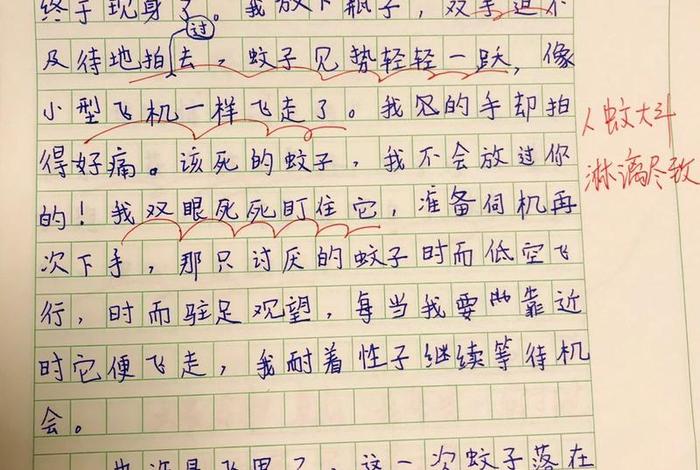 终于现身了。我放下瓶子，双手迫不
及待地拍过去，蚊子见势轻轻一跃，像
小型飞机一样飞走了。我见的手却拍
得好痛。该死的蚊子，我不会放过你
的！我双眼死死盯住它，准备伺机再
次下手，那只讨厌的蚊子时而低空飞
行，时而驻足观望，每当我要靠近
时它便飞走，我耐着性子继续等待机
会。
这一次蚊子落在
人蚊大斗
淋漓尽致